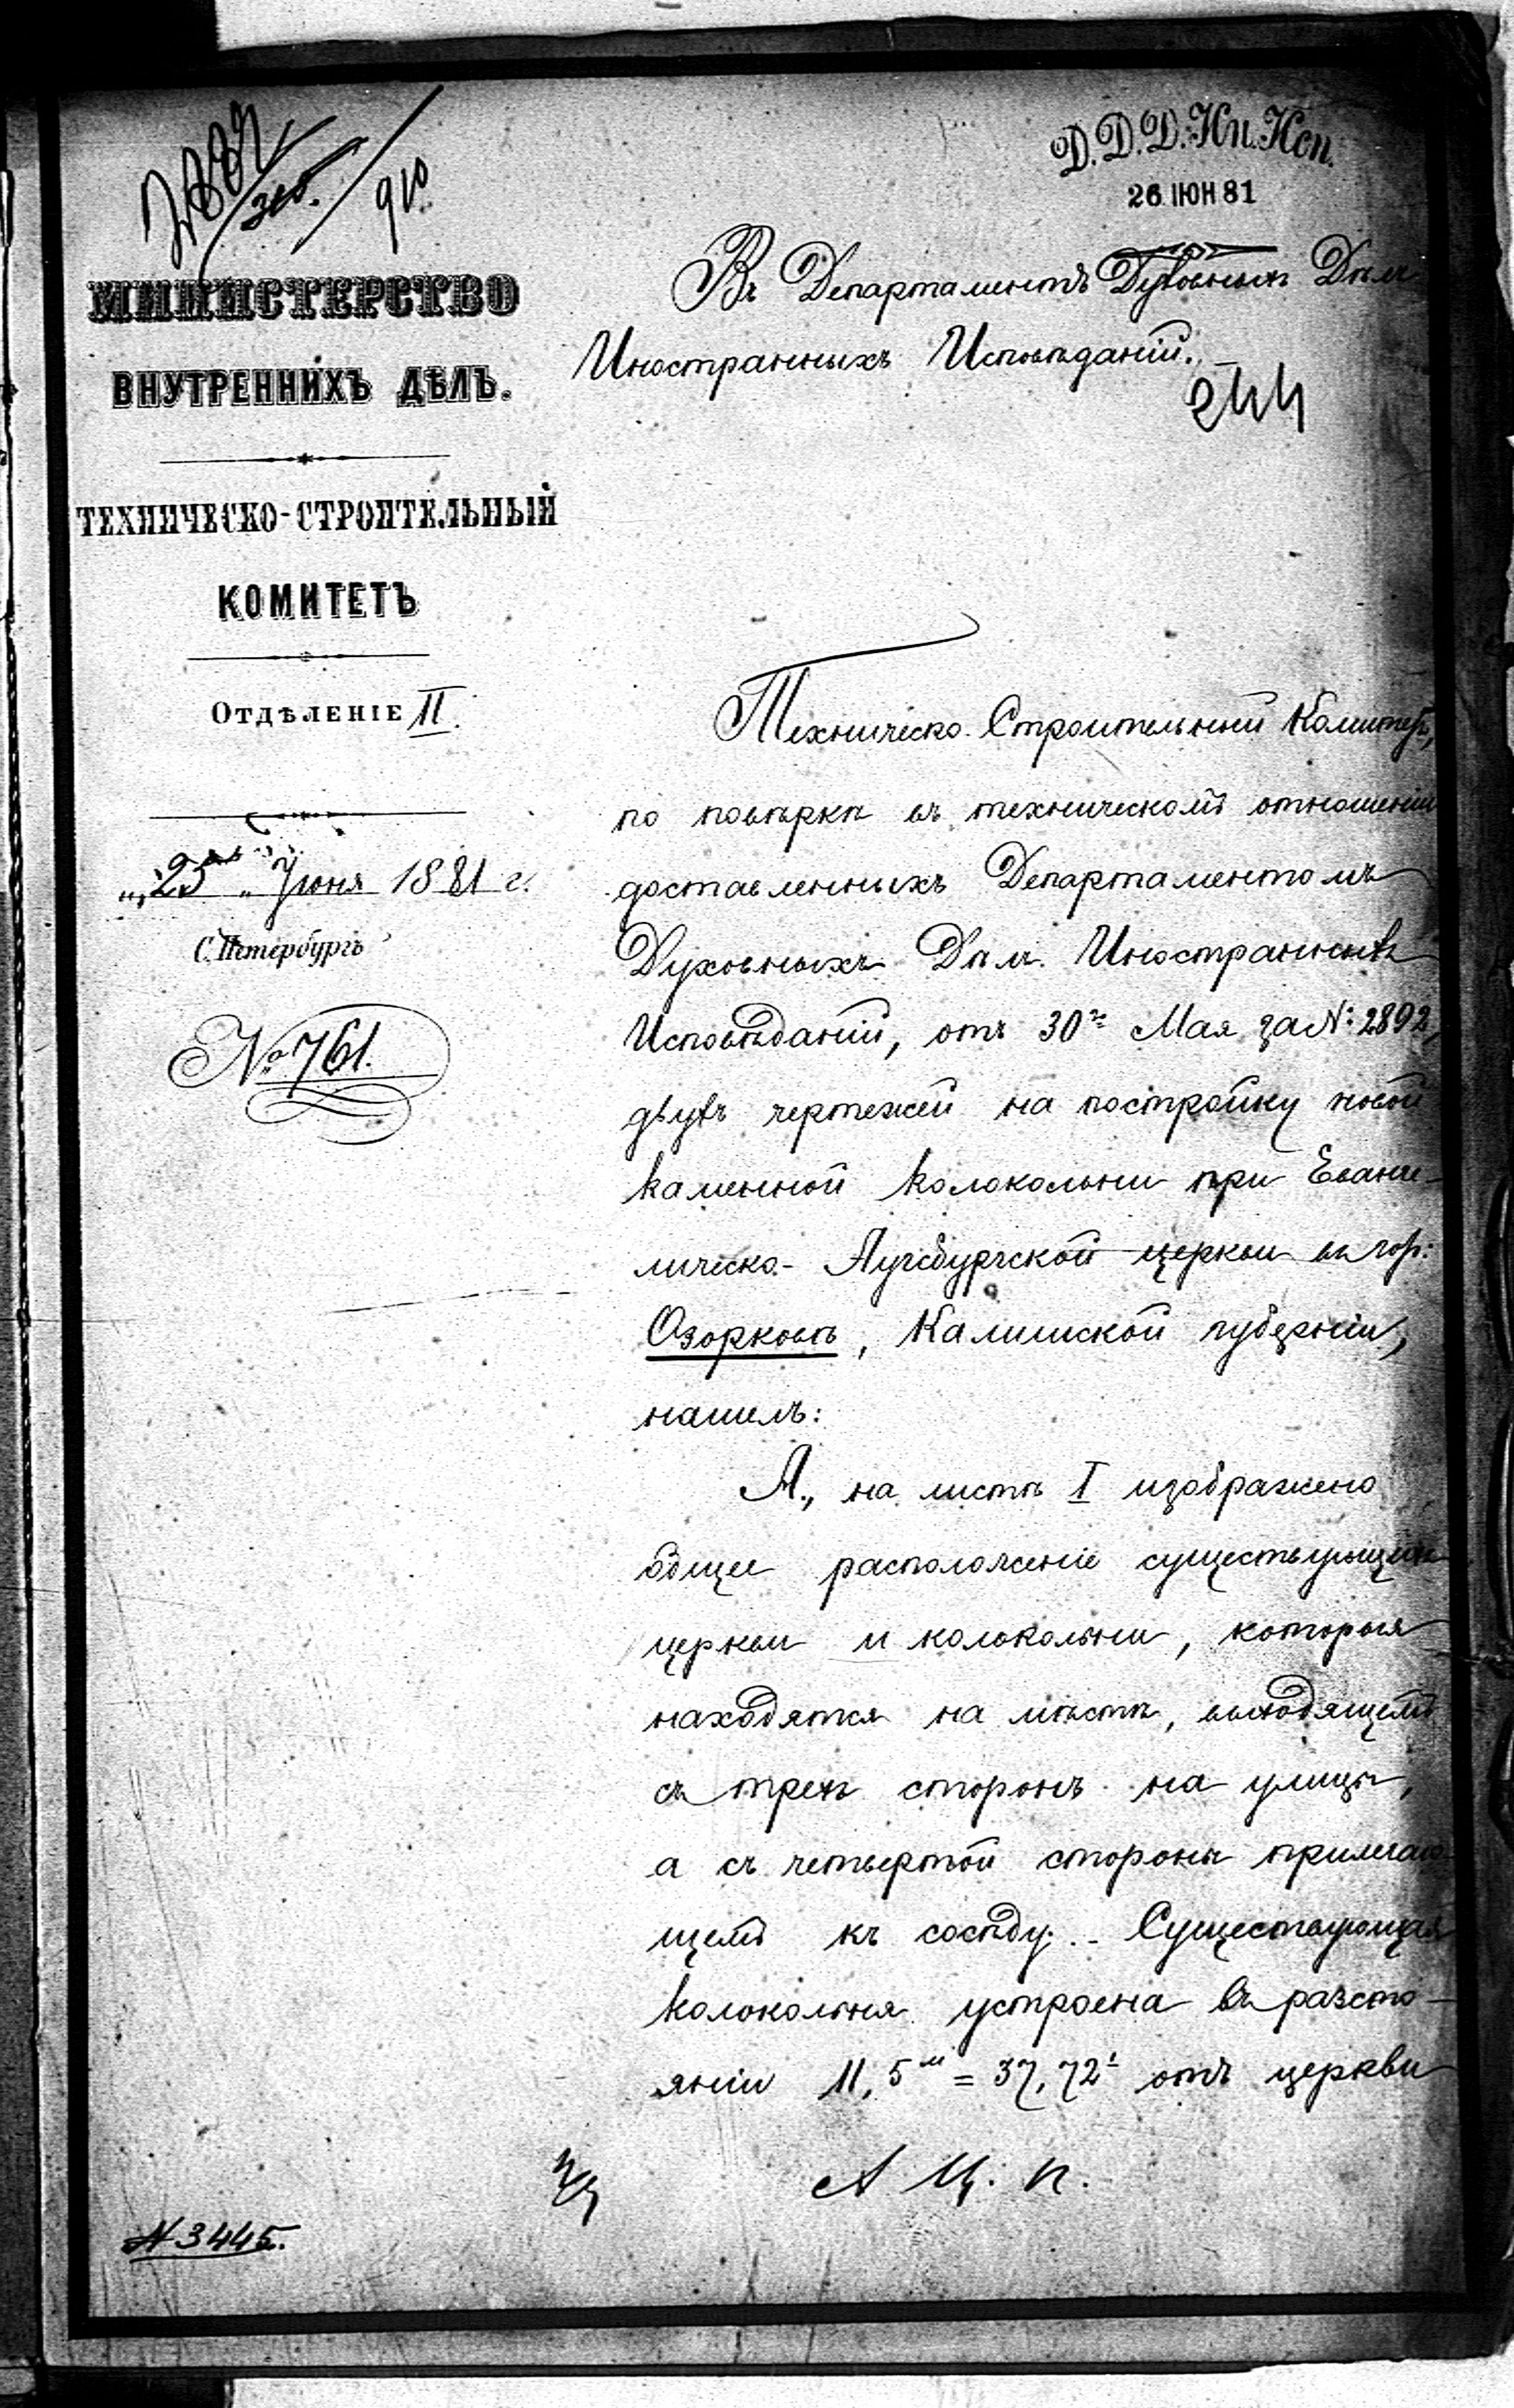 Д. Д. Д. Ин. Исп.
26 ІЮН 81
910
МИНИСТЕРСТВО
ВНУТРЕННИХЪ ДѢЛЪ.
ТЕХНИЧЕСКО-СТРОИТЕЛЬНЫЙ
КОМИТЕТЪ
ОТДѢЛЕНІЕ II.
„25" Іюня 1881 г.
С. Петербургъ
№ 761.
Въ Департаментъ Духовныхъ Дѣлъ
Иностранныхъ Исповѣданій.
244
Техническо-Строительный Комитетъ,
по повѣркѣ въ техническомъ отношеніи
доставленныхъ Департаментомъ
Духовныхъ Дѣлъ Иностранныхъ
Исповѣданій, отъ 30го Мая за №: 2892,
двухъ чертежей на постройку новой
каменной колокольни при Еванге-
лическо-Аугсбургской церкви въ гор:
Озорковѣ, Калишской губерніи,
нашелъ:
А., на листѣ I изображено
общее расположеніе существующихъ
церкви и колокольни, которыя
находятся на мѣстѣ, выходящемъ
съ трехъ сторонъ на улицы,
а съ четвертой стороны прилегаю-
щемъ къ сосѣду. - Существующая
колокольня устроена въ разсто-
яніи 11,5м = 37,72' отъ церкви
№ 3445.